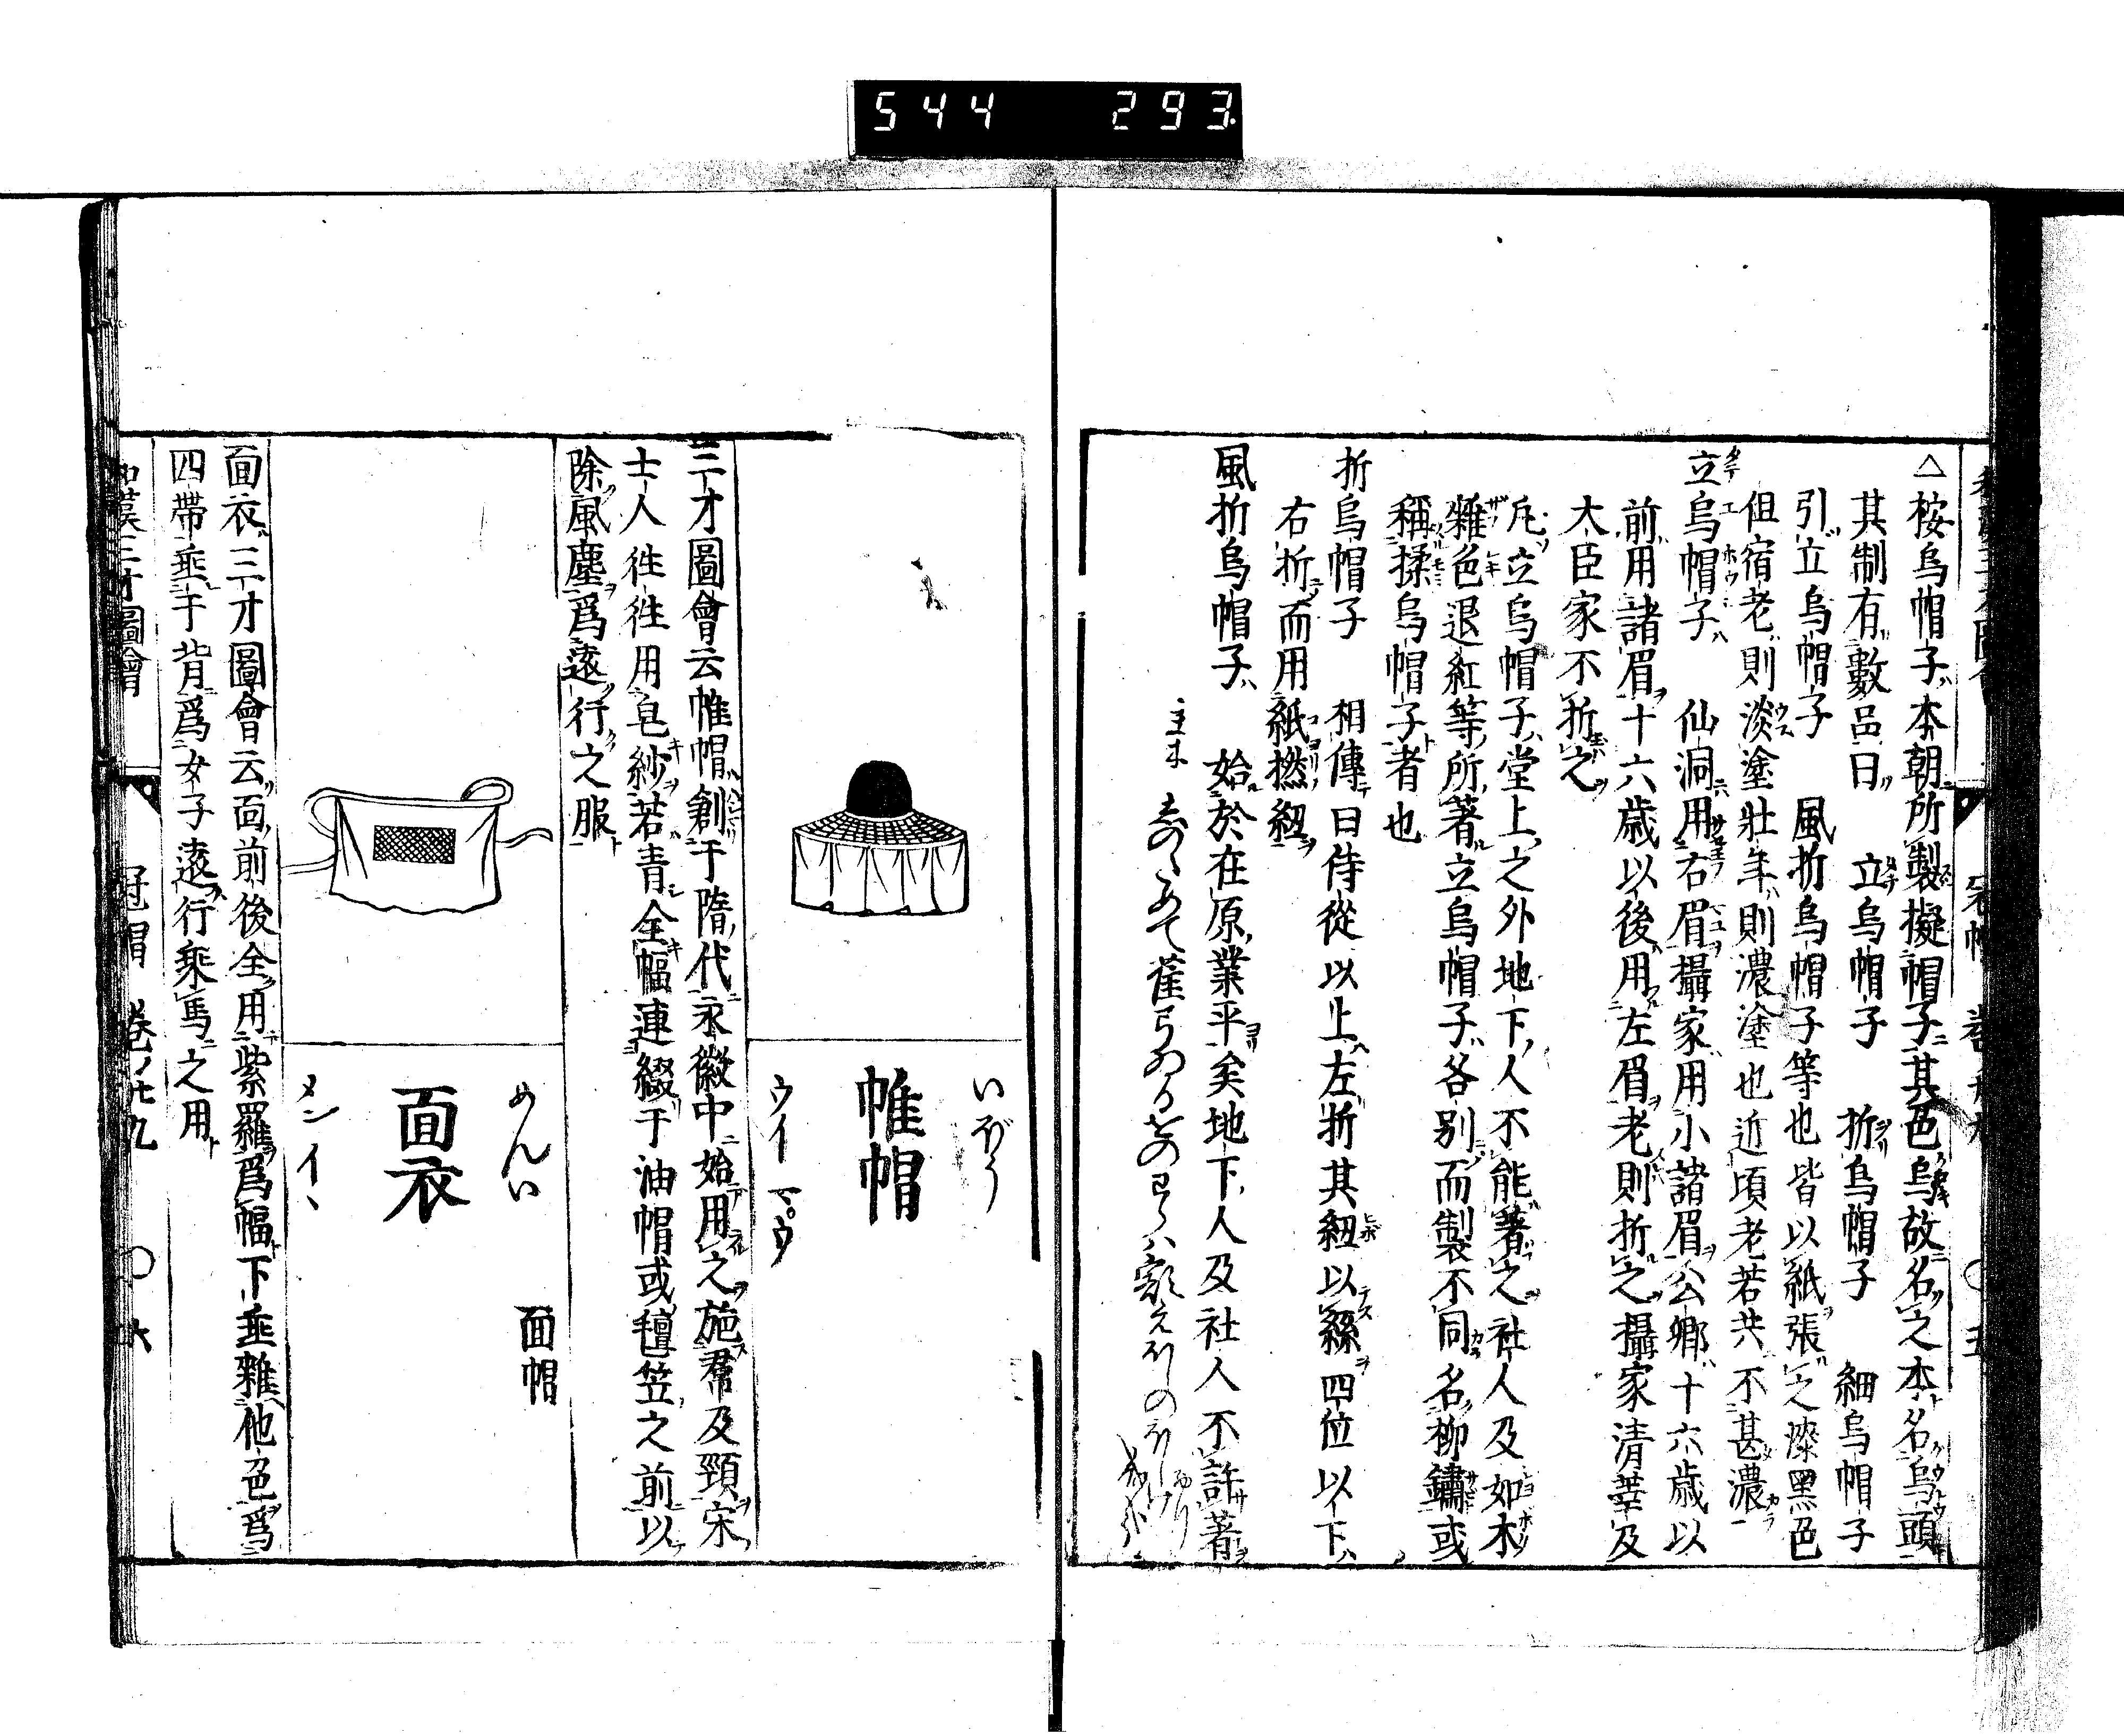 544 293.
△桉烏帽子本朝所製擬帽子其色烏故名之本名烏頭
其制有數品曰 立烏帽子 折烏帽子 細烏帽子
引立烏帽子 風折烏帽子等也皆以紙張之漆黑色
但宿老則淡塗壯年則濃塗也近頃老若共不甚濃
立烏帽子 仙洞用右眉攝家用小諸眉公卿十六歳以
前用諸眉十六歳以後用左眉老則折之攝家清華及
大臣家不折之
凡立烏帽子堂上之外地下人不能著之社人及如木
雜色退紅等所著立烏帽子各别而製不同名柳鏽或
稱揉烏帽子者也
折烏帽子 相傳曰侍從以上左折其紐以絲四位以下
右折而用紙撚紐
風折烏帽子 始於在原業平矣地下人及社人不許著
帷帽
いぼう
ウイ マ゜ウ
三才圖會云帷帽創于隋代永徽中始用之施帬及頸宋
士人徃徃用皂紗若青全幅連綴于油帽或氊笠之前以
除風塵爲遠行之服
面衣
めんい
面帽
メンイヽ
面衣三才圖會云面前後全用紫羅爲幅下垂雜他色爲
四帶垂于背爲女子遠行乘馬之用
和漢三才圖會 冠帽 卷ノ廿九 〇六